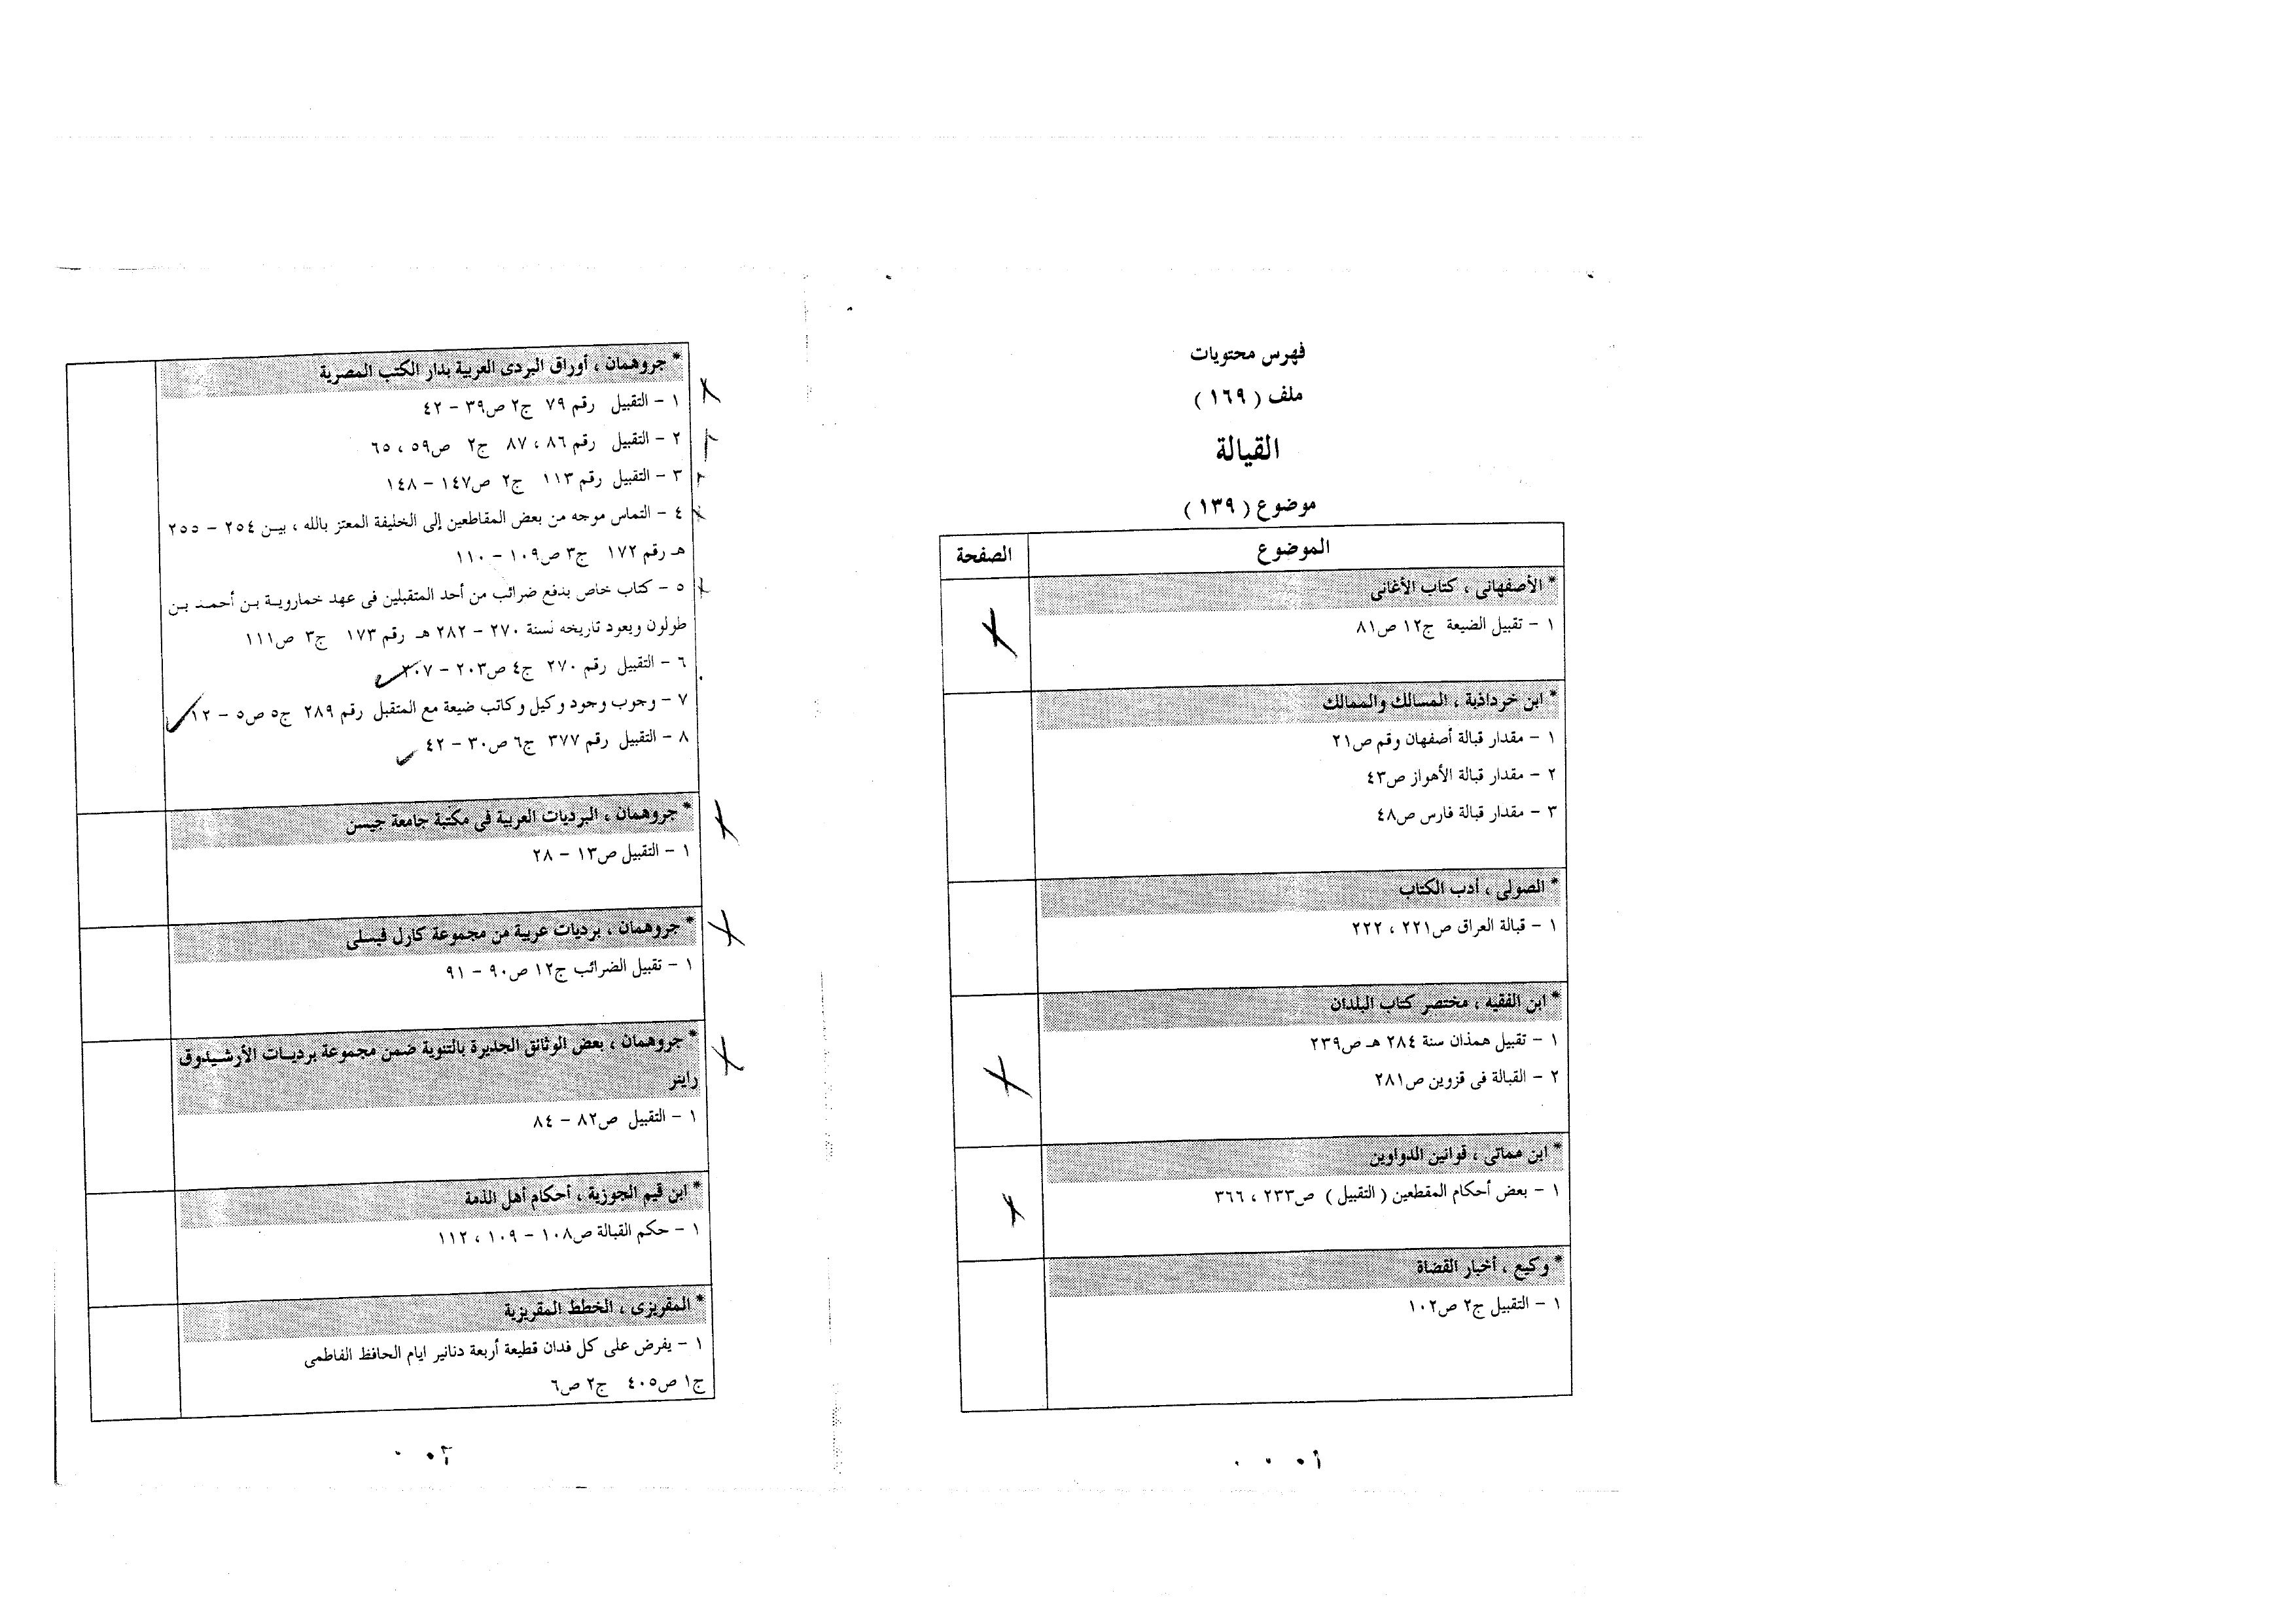 فهرس محتويات
ملف ( ١٦٩ )
القبالة
موضوع ( ١٣٩ )
الموضوع
الصفحة
* الأصفهانى ، كتاب الأغانى
١ – تقبيل الضيعة ج١٢ ص٨١
* ابن خرداذبة ، المسالك والممالك
١ – مقدار قبالة أصفهان وقم ص٢١
٢ – مقدار قبالة الأهواز ص٤٣
٣ – مقدار قبالة فارس ص٤٨
* الصولى ، أدب الكتاب
١ – قبالة العراق ص٢٢١ ، ٢٢٢
* ابن الفقيه ، مختصر كتاب البلدان
١ – تقبيل همذان سنة ٢٨٤ هـ ص٢٣٩
٢ – القبالة فى قزوين ص٢٨١
* ابن مماتى ، قوانين الدواوين
١ – بعض أحكام المقطعين ( التقبيل ) ص٢٣٣ ، ٣٦٦
* وكيع ، أخبار القضاة
١ – التقبيل ج٢ ص١٠٢
* جروهمان ، أوراق البردى العربية بدار الكتب المصرية
١ – التقبيل رقم ٧٩ ج٢ ص٣٩ – ٤٢
٢ – التقبيل رقم ٨٦ ، ٨٧ ج٢ ص٥٩ ، ٦٥
٣ – التقبيل رقم ١١٣ ج٢ ص١٤٧ – ١٤٨
٤ – التماس موجه من بعض المقاطعين إلى الخليفة المعتز بالله ، بيـن ٢٥٤ – ٢٥٥
هـ رقم ١٧٢ ج٣ ص١٠٩ – ١١٠
٥ – كتاب خاص بدفع ضرائب من أحد المتقبلين فى عهد خمارويـة بـن أحمـد بـن
طولون ويعود تاريخه لسنة ٢٧٠ – ٢٨٢ هـ رقم ١٧٣ ج٣ ص١١١
٦ – التقبيل رقم ٢٧٠ ج٤ ص٢٠٣ – ٣٠٧
٧ – وجوب وجود وكيل وكاتب ضيعة مع المتقبل رقم ٢٨٩ ج٥ ص٥ – ١٢
٨ – التقبيل رقم ٣٧٧ ج٦ ص٣٠ – ٤٢
* جروهمان ، البرديات العربية فى مكتبة جامعة جيسن
١ – التقبيل ص١٣ – ٢٨
* جروهمان ، برديات عربية من مجموعة كارل فيسلى
١ – تقبيل الضرائب ج١٢ ص٩٠ – ٩١
* جروهمان ، بعض الوثائق الجديرة بالتنوية ضمن مجموعة برديـات الأرشـيدوق
راينر
١ – التقبيل ص٨٢ – ٨٤
* ابن قيم الجوزية ، أحكام أهل الذمة
١ – حكم القبالة ص١٠٨ – ١٠٩ ، ١١٢
* المقريزى ، الخطط المقريزية
١ – يفرض على كل فدان قطيعة أربعة دنانير ايام الحافظ الفاطمى
ج١ ص٤٠٥ ج٢ ص٦